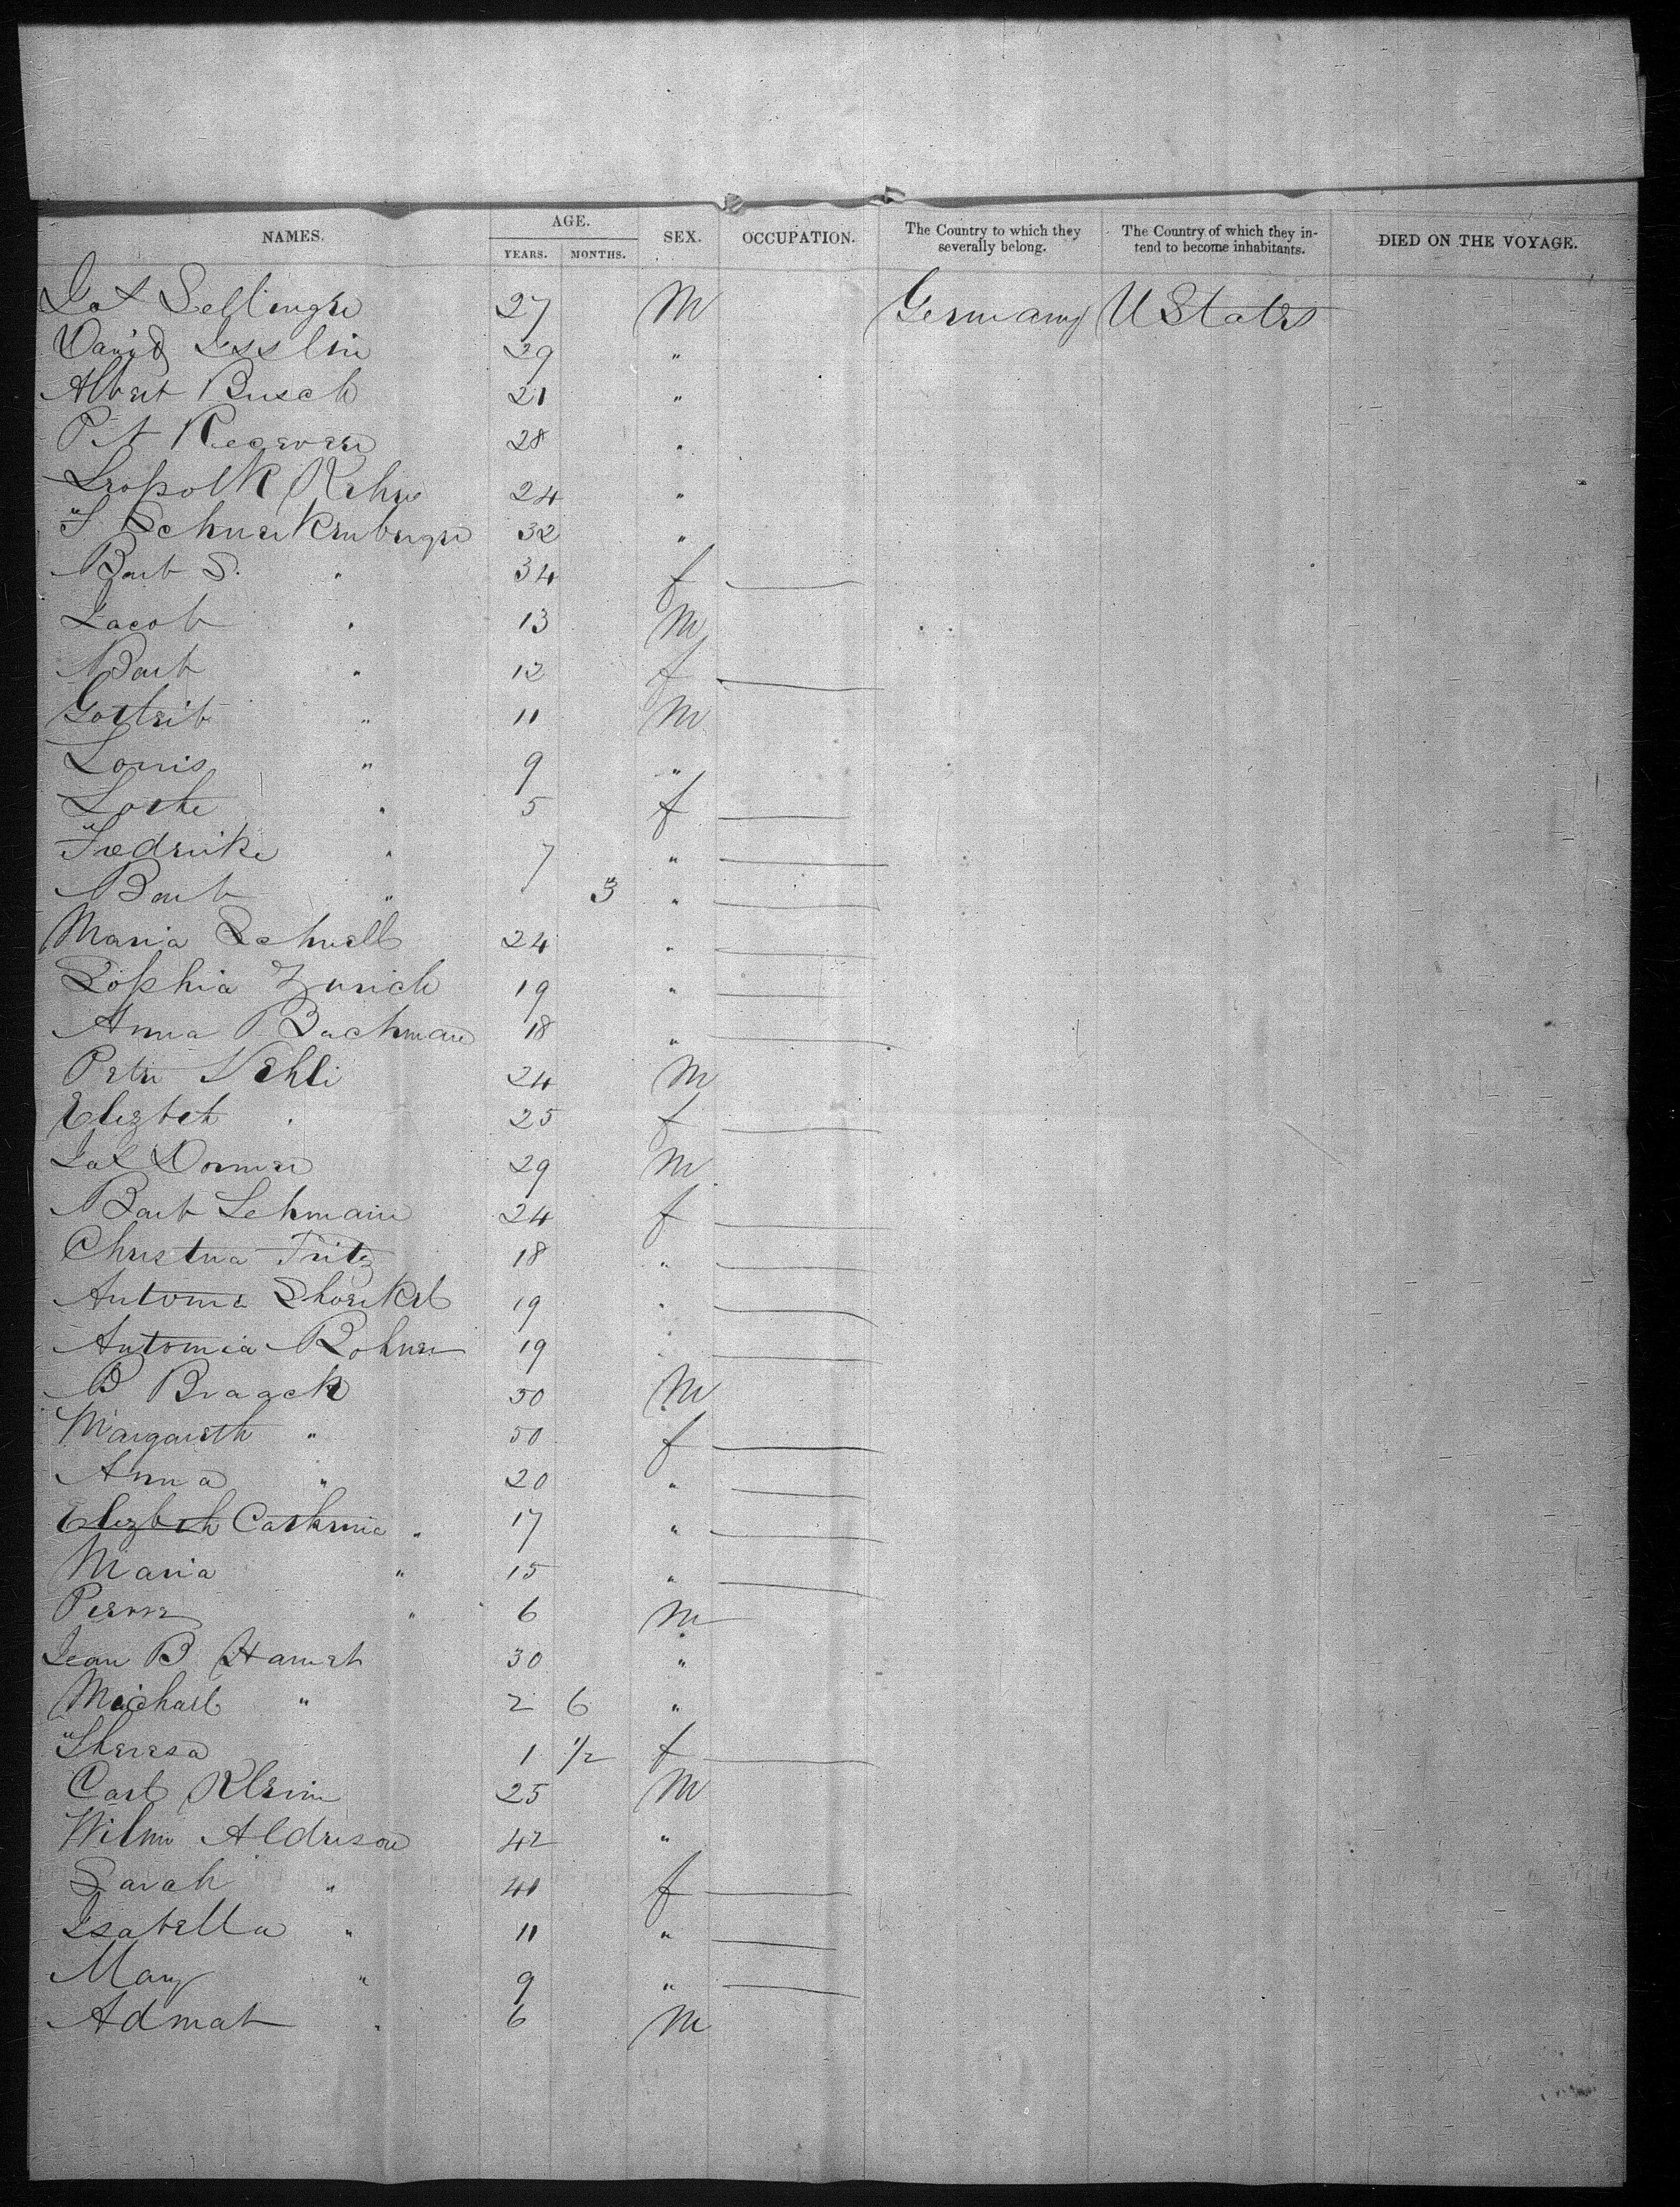 NAMES. AGE. YEARS. MONTHS. SEX. OCCUPATION. The Country to which they severally belong. The Country of which they intend to become inhabitants. DIED ON THE VOYAGE.
27 M Germany UStates
David 29 "
Albert Busch 21 "
28 "
24 "
32 "
Barb S. " 34 f
Jacob " 13 M
Barb " 12 f
" 11 M
Louis " 9 "
" 5 f
" 7 "
Barb " 3 "
Maria Schnell 24 "
Sophia Zurich 19 "
Anna Bachman 18 "
Peter 24 M
Elizbet " 25 f
29 M
Barb Lehmann 24 f
Christina Fritz 18 "
19 "
Antonia Rohner 19 "
B Braack 50 M
Margareth " 50 f
Anna " 20 "
Elizbeth " 17 "
Maria " 15 "
Pierre " 6 M
Jean B 30 "
Michael " 2 6 "
Theresa 1 1/2 f
Carl Klein 25 M
Wilm 42 "
Sarah " 41 f
Isabella " 11 "
Mary " 9 "
" 6 M